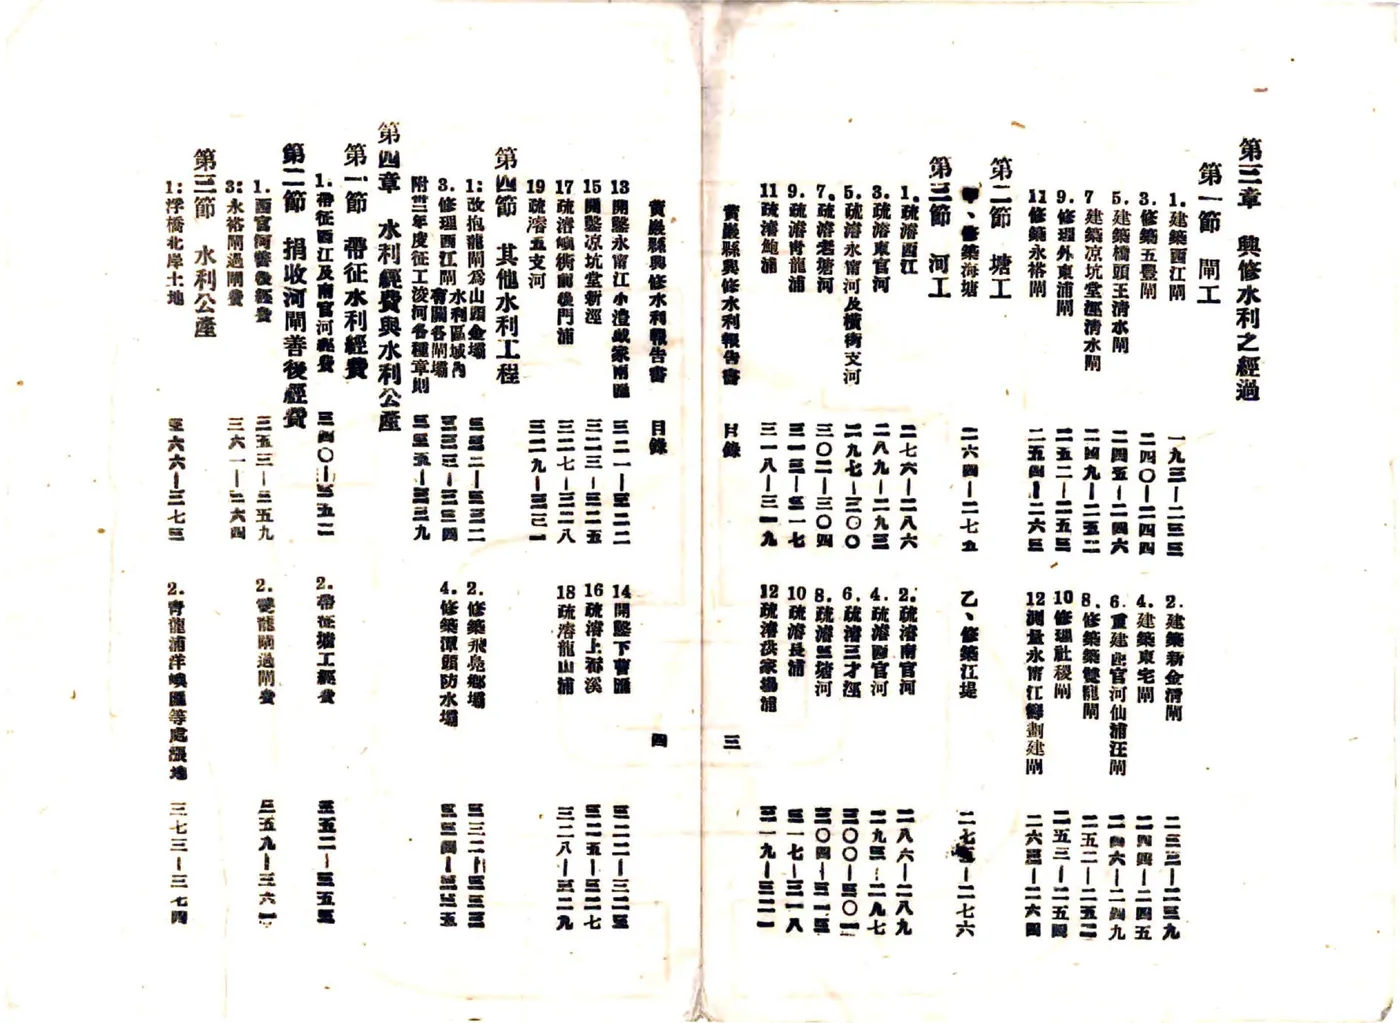 第三章　興修水利之經過
第一節　閘工
1. 建築西江閘　一九三—二三三　2. 建築新金清閘　二三三—二三九
3. 修築五豐閘　二四〇—二四四　4. 建築東宅閘　二四四—二四五
5. 建築橋頭王清水閘　二四五—二四六　6. 重建西官河仙浦汪閘　二四六—二四九
7 建築凉坑堂涇清水閘　二四九—二五二　8. 修築雙龍閘　二五二—二五二
9. 修理外東浦閘　二五二—二五三　10 修理社稷閘　二五三—二五四
11 修築永裕閘　二五四—二六三　12 測量永甯江籌劃建閘　二六三—二六四
第二節　塘工
甲、修築海塘　二六四—二七五　乙、修築江堤　二七五—二七六
第三節　河工
1. 疏濬西江　二七六—二八六　2. 疏濬南官河　二八六—二八九
3. 疏濬東官河　二八九—二九三　4. 疏濬西官河　二九三—二九七
5. 疏濬永甯河及橫街支河　二九七—三〇〇　6. 疏濬三才涇　三〇〇—三〇一
7. 疏濬老塘河　三〇二—三〇四　8. 疏濬三塘河　三〇四—三一三
9. 疏濬青龍浦　三一三—三一七　10 疏濬長浦　三一七—三一八
11 疏濬鮑浦　三一八—三一九　12 疏濬洪家場浦　三一九—三二一
黃巖縣興修水利報告書　目錄　三
黃巖縣興修水利報告書　目錄　四
13 開鑿永甯江小澄戚家兩匯　三二一—三二二　14 開鑿下曹匯　三二二—三二三
15 開鑿凉坑堂新涇　三二三—三二五　16 疏濬上香溪　三二五—三二七
17 疏濬衙前後門浦　三二七—三二八　18 疏濬龍山浦　三二八—三二九
19 疏濬五支河　三二九—三三一
第四節　其他水利工程
1: 改抱龍閘爲山頭金壩　三三二—三三二　2. 修築飛鳧鄉壩　三三二—三三三
3. 修理西江閘水利區域內有關各閘壩　三三三—三三四　4. 修築潭頭防水壩　三三四—三三五
附廿三年度征工浚河各種章則　三三五—三三九
第四章　水利經費與水利公產
第一節　帶征水利經費
1. 帶征西江及南官河經費　三四〇—三五二　2. 帶征塘工經費　三五二—三五三
第二節　捐收河閘善後經費
1. 西官河善後經費　三五三—三五九　2. 雙龍閘過閘費　三五九—三六一
3: 永裕閘過閘費　三六一—三六四
第三節　水利公產
1: 浮橋北岸土地　三六六—三七三　2. 青龍浦洋嶼匯等處漲地　三七三—三七四